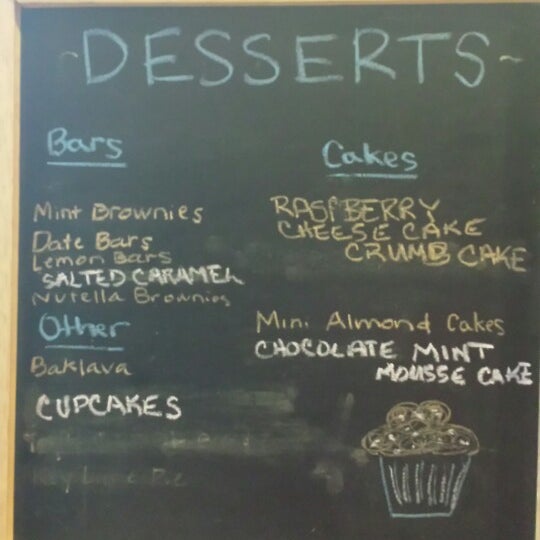 ~DESSERTS~
Bars
Mint Brownies
Date Bars
Lemon Bars
SALTED CARAMEL
Nutella Brownies
Other
Baklava
CUPCAKES
Key Lime Pie
Cakes
RASPBERRY
CHEESE CAKE
CRUMB CAKE
Mini Almond Cakes
CHOCOLATE MINT
MOUSSE CAKE